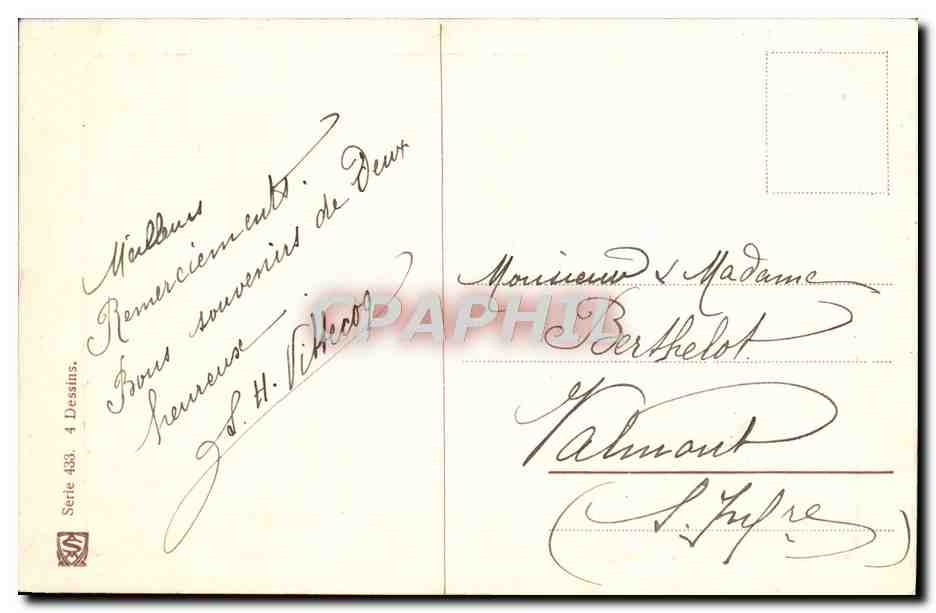 Meilleurs
Remerciements.
Bons souvenirs de Deux
heureux
S. H.
Serie 433. 4 Dessins.
CPAPHIL
Monsieur & Madame
Berthelot
Valmont
(S. Infre)